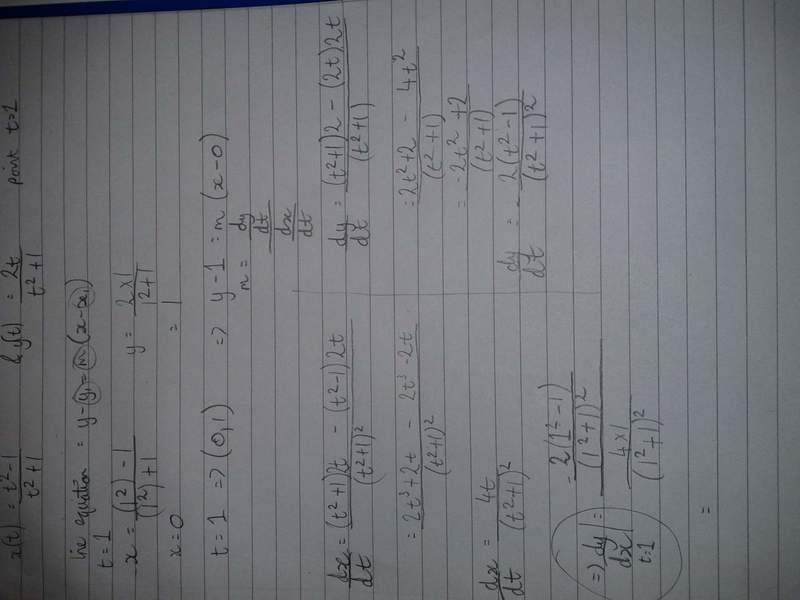 x(t) = (t²-1)/(t²+1) & y(t) = 2t/(t²+1) point t=1
line equation = y-y₁=m(x-x₁)
t=1
x = ((1²)-1)/((1²)+1) y = (2×1)/(1²+1)
x=0 = 1
t=1 => (0,1) => y-1 = m(x-0)
m = (dy/dt)/(dx/dt)
dx/dt = ((t²+1)2t - (t²-1)2t)/(t²+1)²
= (2t³+2t - 2t³-2t)/(t²+1)²
dx/dt = 4t/(t²+1)²
dy/dt = ((t²+1)2 - (2t)2t)/(t²+1)
= (2t²+2 - 4t²)/(t²+1)
= (-2t²+2)/(t²+1)
dy/dt = -2(t²-1)/(t²+1)²
=> dy/dx|t=1 = (-2(1²-1)/(1²+1)²)/(4×1/(1²+1)²)
=